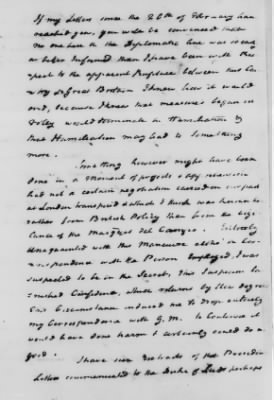 If my Letters since the 26th of February have
reached you, you will be convinced that
no one here in the Diplomatic line was so early
or better Informed than I have been with res-
pect to the apparent Rupture between this Coun-
try & Great Britain I knew how it would
end, because I knew that measures began in
folly would terminate in Humiliation &
that Humiliation may lead to something
more.
Something however might have been
done in a moment of projects & apprehension
had not a certain negotiation carried on in part
at London transpired & which I think was known
rather from British Policy than from the vigi-
lance of the Marquis del Campo. Entirely
unacquainted with this Manœuvre altho in Cor-
respondence with the Person employed, I was
suspected to be in the Secret, this Suspicion
Confidence, which returns by slow degrees
this Circumstance induced me to drop entirely
my Correspondence with G. M. to Continue it
would have done harm & certainly could do no
good.
I have since the Presidents
Letter communicated to the Duke of Leeds perhaps